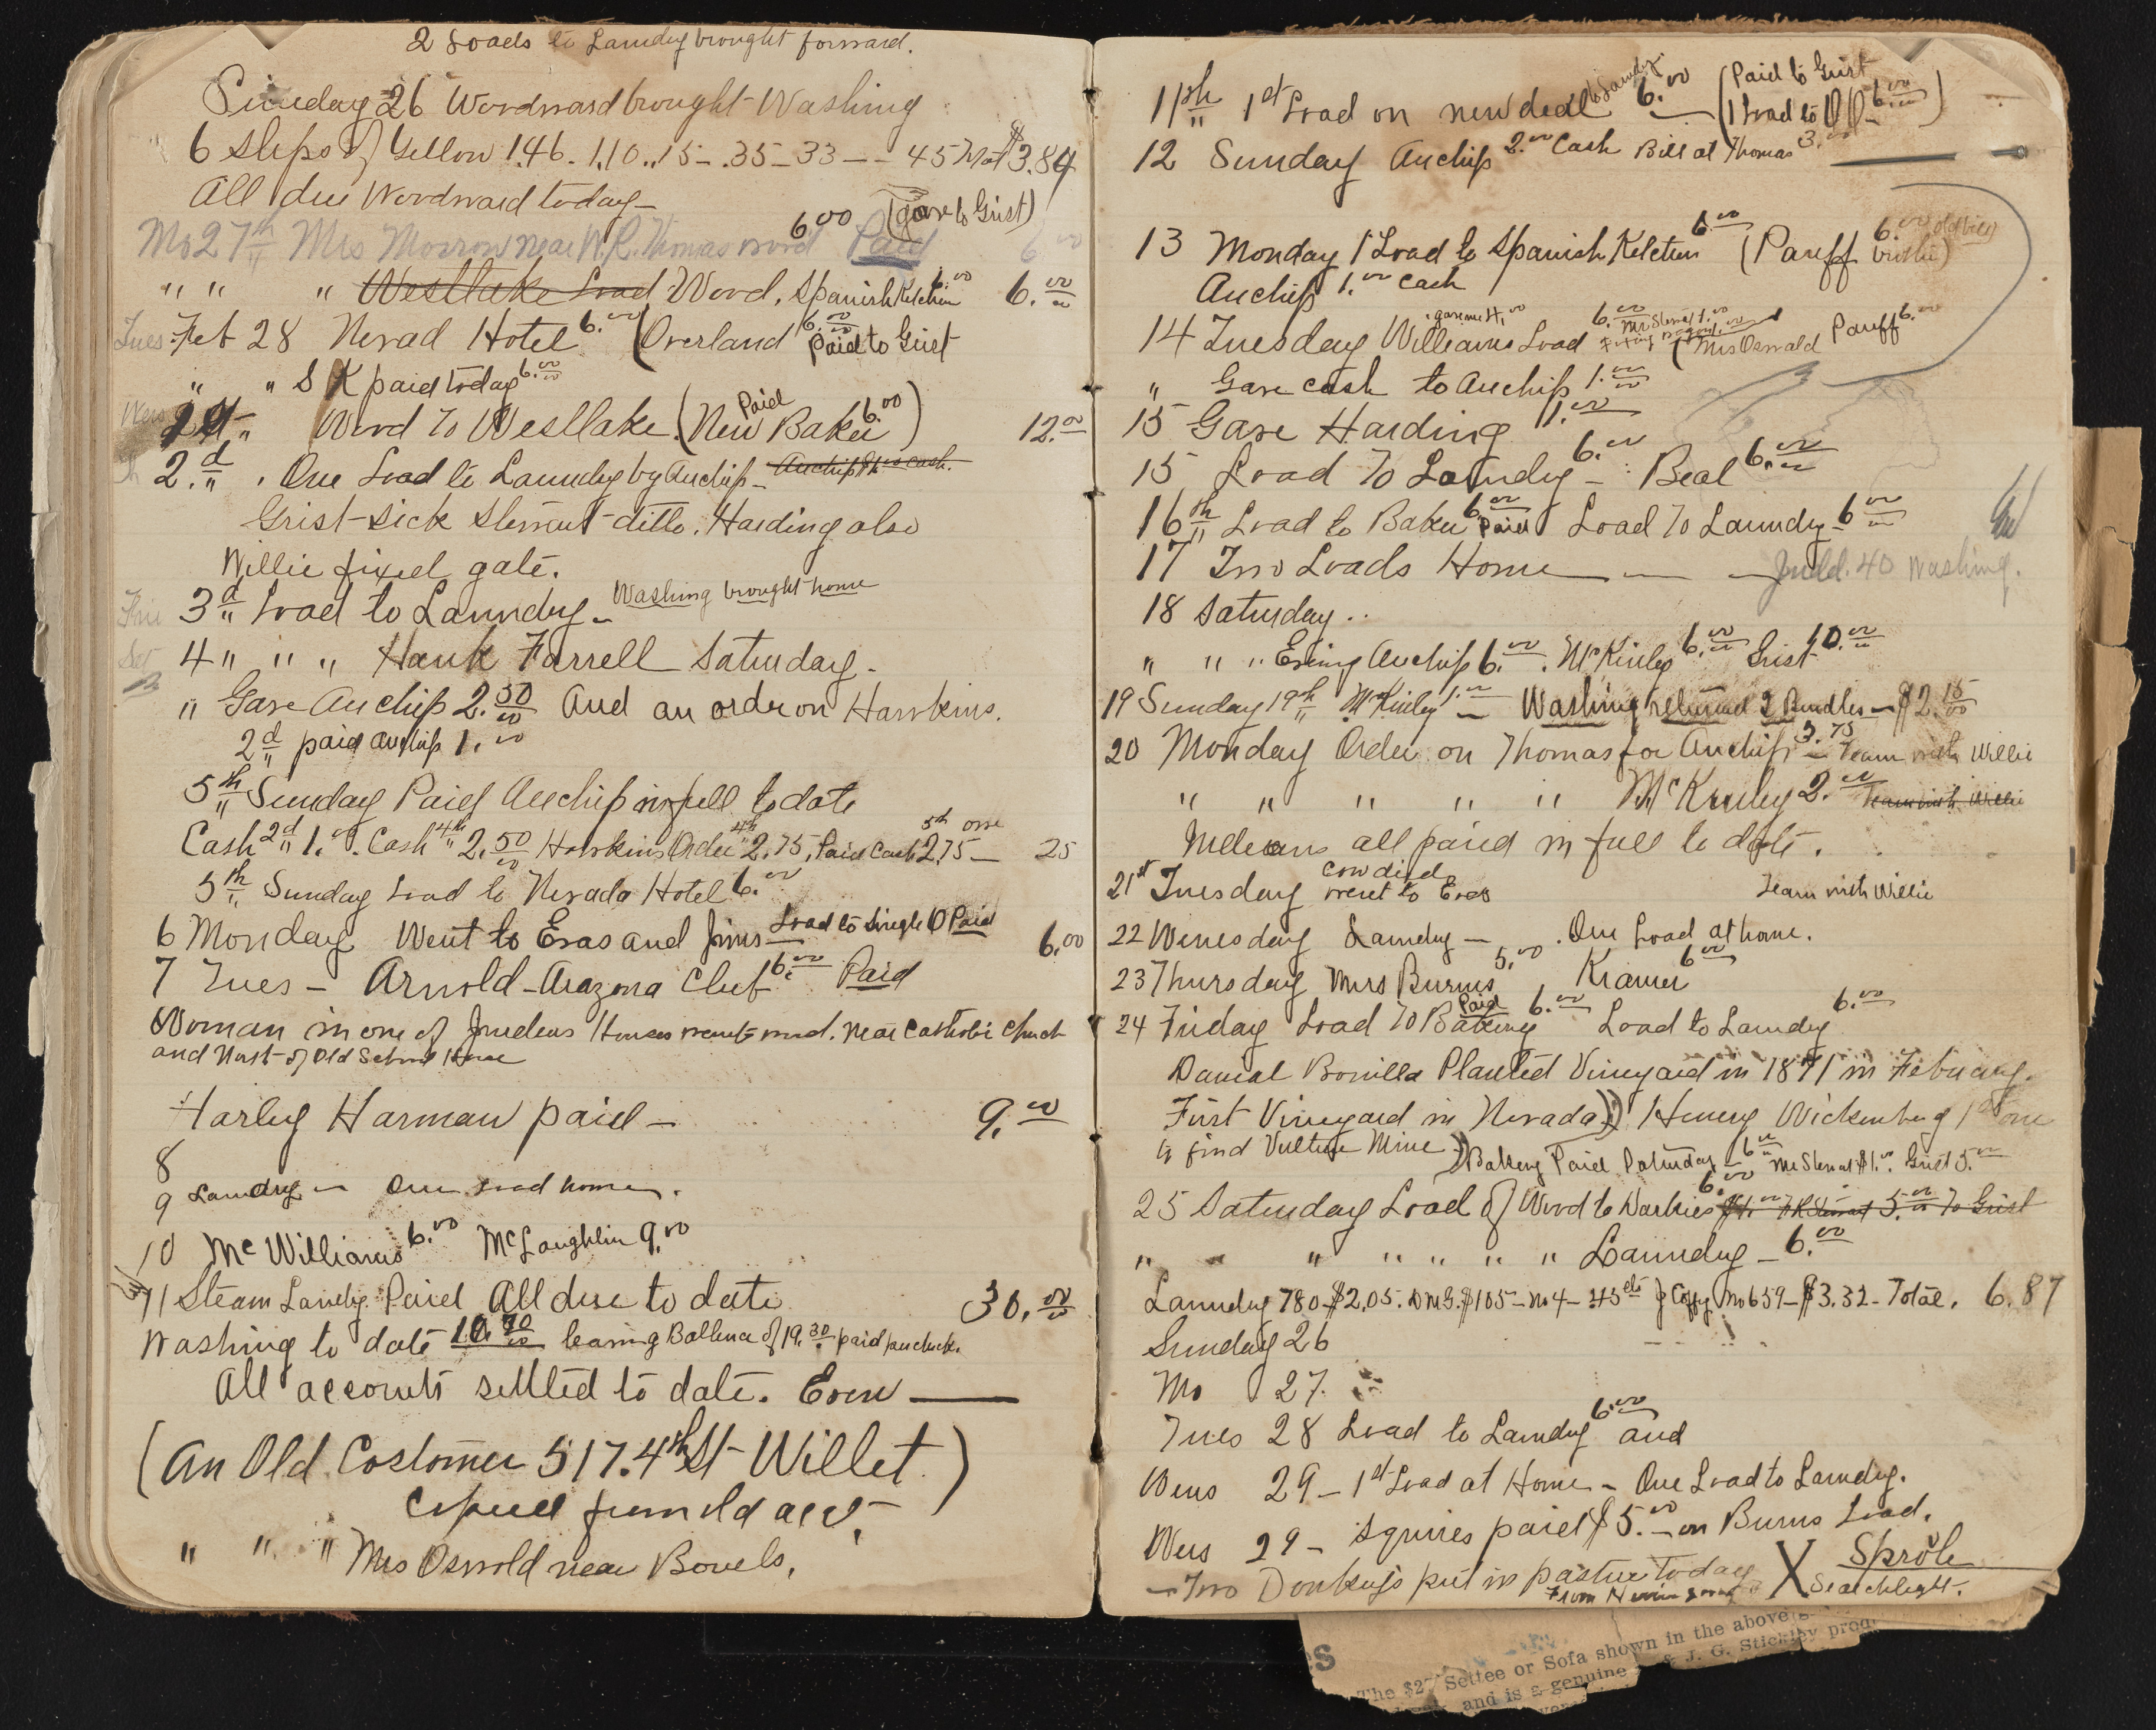 2 Loads to Laundry brought forward.
Sunday 26 Woodward brought Washing
6 slips of Yellow 1.46. 1.10..15-.35-33-- 45 $3.84
All due Woodward today-
(gave to Grist)
Mo 27th Mrs Morrow near W.R. Thomas wood 6.00 Paid 6.00
" " " Westlake Load Wood, Spanish Kitchen 6.00 6.00
Tues. Feb 28 Nevad Hotel 6.00 (Overland 6.00 Paid to Grist
" " S K paid today 6.00
1st " Wood To Westlake. (New Baker Paid 6.00) 12.00
Th 2.d " . One Load to Laundry by Auchip - Auchip $1.00 cash.
Grist-sick Stewart-ditto. Harding also
Willie fixed gate.
Fri 3d " Load to Laundry - Washing brought home
Sat 4 " " " Hank Farrell Saturday -
" Gave Auchip 2.50 And an order on Hawkins.
2d paid Auchip 1.00
5th " Sunday Paid Auchip in full to date
Cash 2d " 1.00. Cash 4th " 2.50 Hawkins Order 4th 2.75, Paid Cash 5th 2.75 - 25
5th " Sunday Load to Nevada Hotel 6.00
6 Monday Went to Evas and Jims - Load to Single O Paid 6.00
7 Tues - Arnold - Arazona Club 6.00 Paid
Woman in one of Houses wants wood. Near Catholic Church
and West of Old School House
Harley Harman paid - 9.00
8
9 Laundry - One Load home.
10 McWilliams 6.00 McLaughlin 9.00
11 Steam Laundry Paid All due to date 30.00
Washing to date 10.70 leaving Ballence of 19.30 paid per check.
All accounts settled to date. Even
(An Old Costomer 517. 4th St - Willet.)
Copied from old acct.
" " " Mrs Oswold near Bowels.
11th " 1st Load on new deal to Laundry 6.00 - (Paid to Grist
1 Load to O O - 6.00)
12 Sunday Auchip 2.00 Cash Bill at Thomas 3.00
13 Monday 1 Load to Spanish Kitchen 6.00 (Pauff 6.00 old bill)
Auchip 1.00 Cash
14 Tuesday Williams Load 6.00 Mr Stewart 1.00 (Mrs Oswald Pauff 6.00
gave me 4.00
" Gave cash to Auchip 1.00
15 Gave Harding 1.00
15 Load To Laundry 6.00 - Beal 6.00
16th " Load to Baker 6.00 Paid Load To Laundry 6.00
17 Two Loads Home - - 40 Washing.
18 Saturday..
" " " Ewing Auchip 6.00. McKinley 6.00 Grist 10.00
19 Sunday 19th " McKinley 1.00 - Washing returned 2 Bundles - $2.15
20 Monday Order on Thomas for Auchip 3.75 - Team with Willie
" " " " " McKinley 2.00 Team with Willie
Indians all paid in full to date.
21st Tuesday cow died went to Evas Team with Willie
22 Wenesday Laundry - . One Load at home.
23 Thursday Mrs Burns 5.00 Kramer 6.00
24 Friday Load To Bakery Paid 6.00 Load to Laundry 6.00
Danial Bonilla Planted Vineyard in 1871 in Febuary.
First Vineyard in Nevada)) Henery Wickenburg 1st one
to find Vulture Mine)) Bakery Paid Saturday - 6.00 Mr Stewart $1.00. Grist 5.00
25 Saturday Load of Wood to Darkies 6.00 5.00 To Grist
" " " " " " " Laundry - 6.00
Laundry 780 - $2.05. $1 05 - No 4 - .45 cts No 659 - $3.32 - Total. 6.87
Sunday 26
Mo 27.
Tues 28 Load to Laundry 6.00 and
Wens 29 - 1st Load at Home - One Load to Laundry.
Wens 29 - Squires paid $5.00 - on Burns Load.
- Two Donkeys put in pasture today X Sprole
From Searchlight.
The $27 Settee or Sofa shown in the above
and is a genuine L. & J. G. Stickley